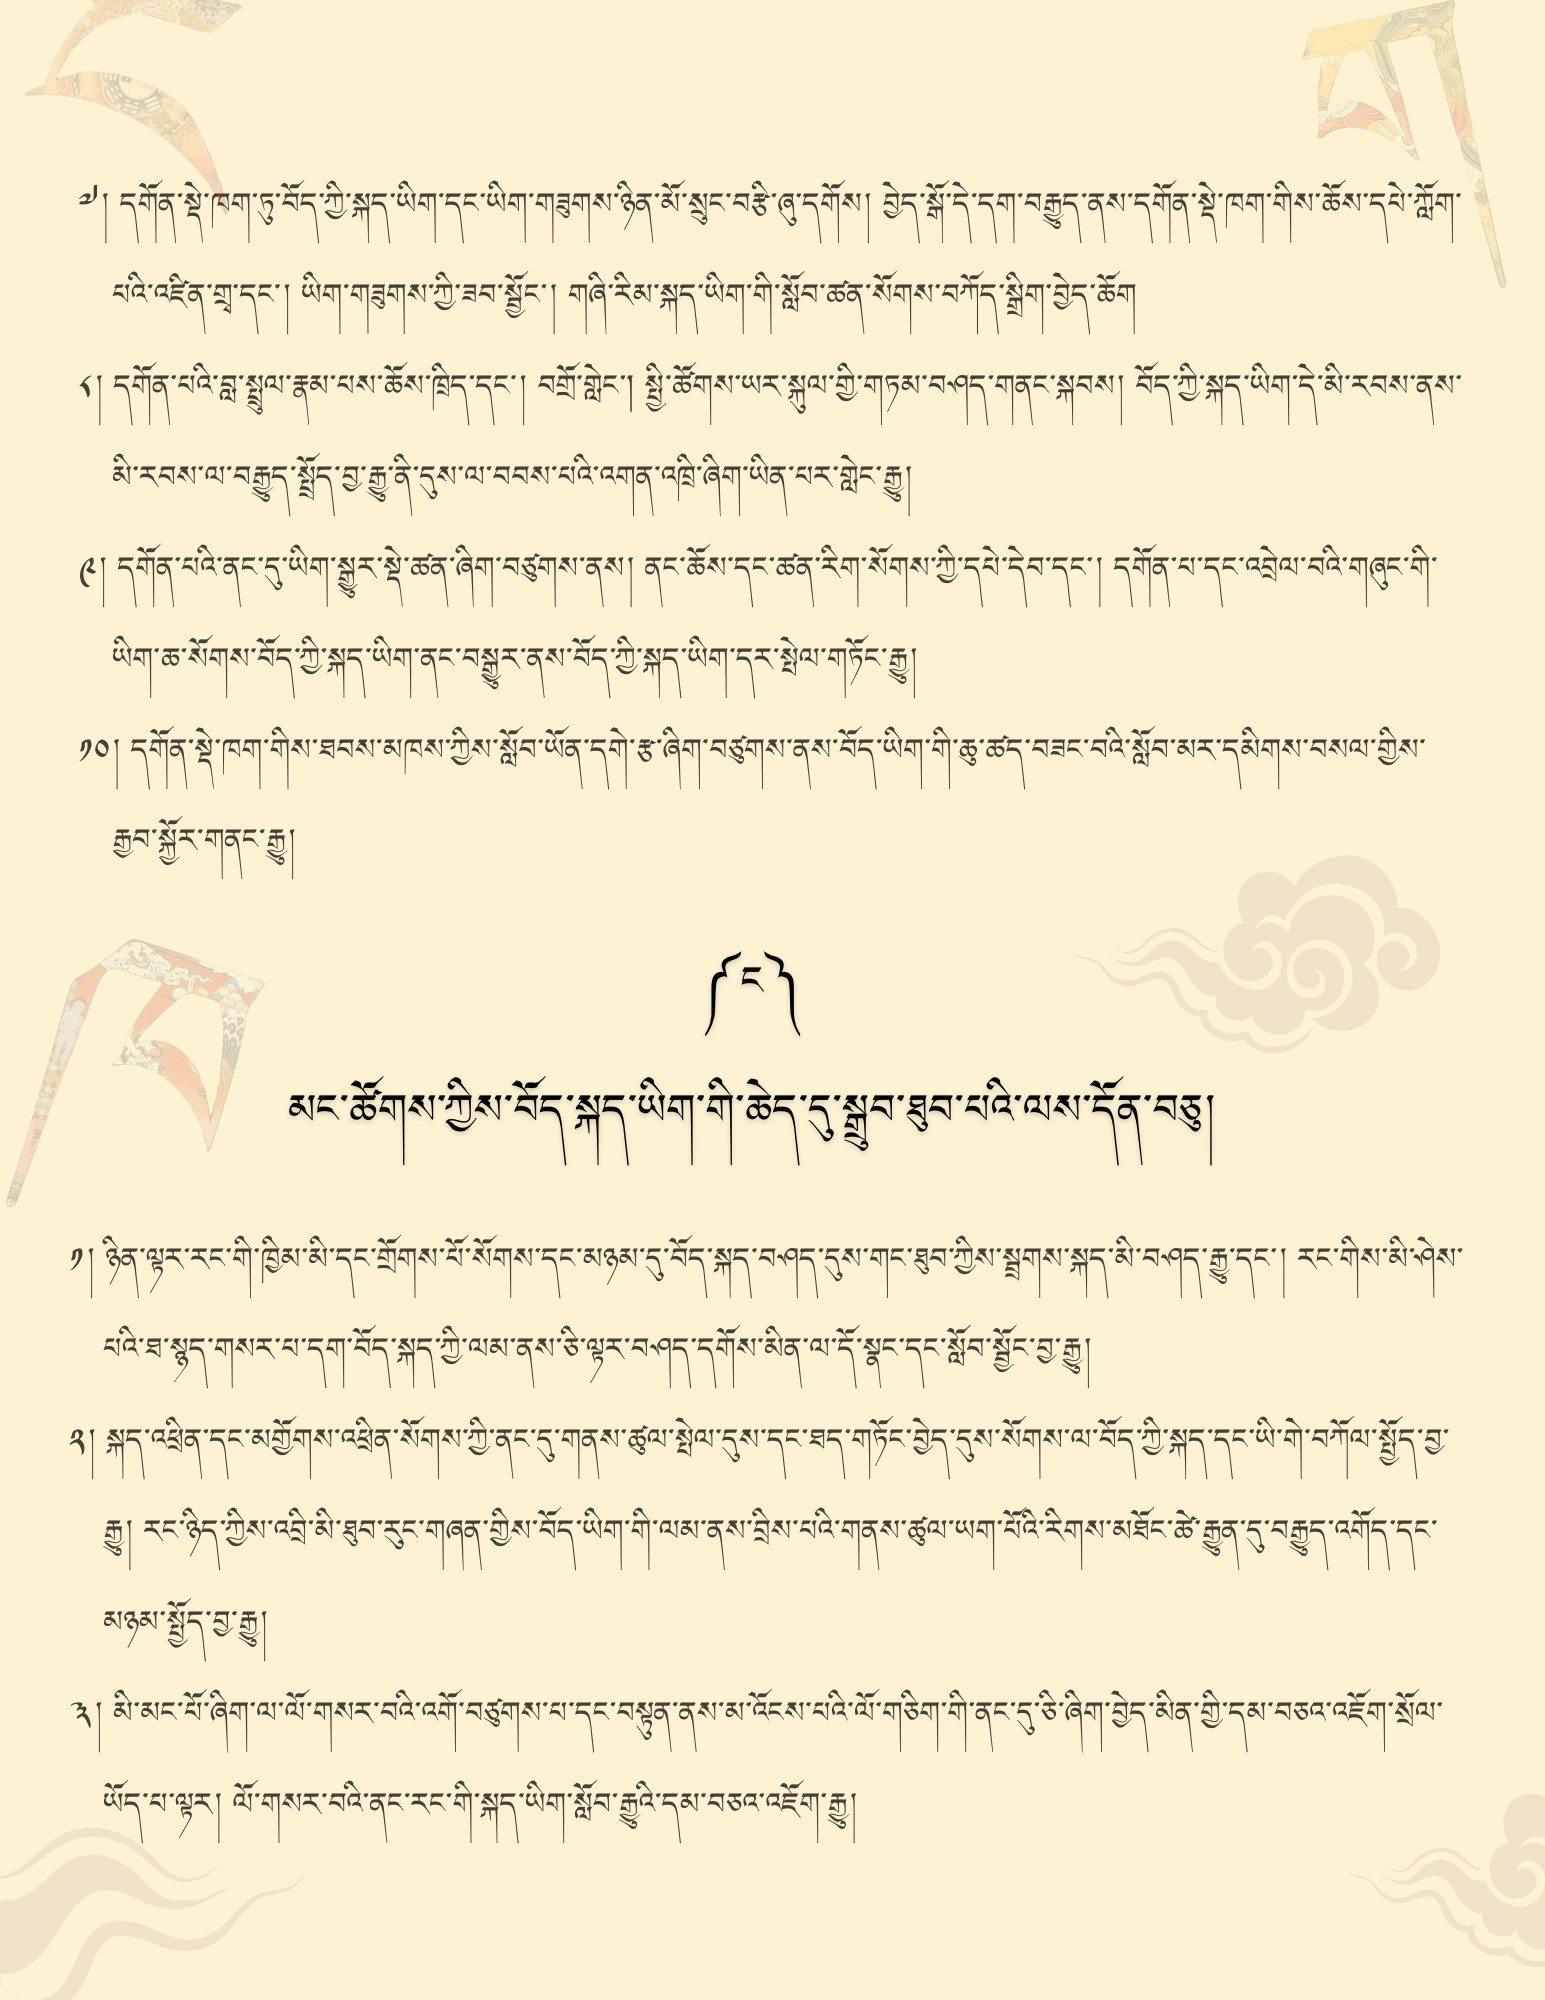 ༧། དགོན་སྡེ་ཁག་ཏུ་བོད་ཀྱི་སྐད་ཡིག་དང་ཡིག་གཟུགས་ཉིན་མོ་སྲུང་བརྩི་ཞུ་དགོས། བྱེད་སྒོ་དེ་དག་བརྒྱུད་ནས་དགོན་སྡེ་ཁག་གིས་ཆོས་དཔེ་ཀློག་
པའི་འཛིན་གྲྭ་དང་། ཡིག་གཟུགས་ཀྱི་ཟབ་སྦྱོང་། གཞི་རིམ་སྐད་ཡིག་གི་སློབ་ཚན་སོགས་བཀོད་སྒྲིག་བྱེད་ཆོག
༨། དགོན་པའི་བླ་སྤྲུལ་རྣམ་པས་ཆོས་ཁྲིད་དང་། བགྲོ་གླེང་། སྤྱི་ཚོགས་ཡར་སྐུལ་གྱི་གཏམ་བཤད་གནང་སྐབས། བོད་ཀྱི་སྐད་ཡིག་དེ་མི་རབས་ནས་
མི་རབས་ལ་བརྒྱུད་སྤྲོད་བྱ་རྒྱུ་ནི་དུས་ལ་བབས་པའི་འགན་འཁྲི་ཞིག་ཡིན་པར་གླེང་རྒྱུ།
༩། དགོན་པའི་ནང་དུ་ཡིག་སྒྱུར་སྡེ་ཚན་ཞིག་བཙུགས་ནས། ནང་ཆོས་དང་ཚན་རིག་སོགས་ཀྱི་དཔེ་དེབ་དང་། དགོན་པ་དང་འབྲེལ་བའི་གཞུང་གི་
ཡིག་ཆ་སོགས་བོད་ཀྱི་སྐད་ཡིག་ནང་བསྒྱུར་ནས་བོད་ཀྱི་སྐད་ཡིག་དར་སྤེལ་གཏོང་རྒྱུ།
༡༠། དགོན་སྡེ་ཁག་གིས་ཐབས་མཁས་ཀྱིས་སློབ་ཡོན་དགེ་རྩ་ཞིག་བཙུགས་ནས་བོད་ཡིག་གི་ཆུ་ཚད་བཟང་བའི་སློབ་མར་དམིགས་བསལ་གྱིས་
རྒྱབ་སྐྱོར་གནང་རྒྱུ།
༼ ང ༽
མང་ཚོགས་ཀྱིས་བོད་སྐད་ཡིག་གི་ཆེད་དུ་སྒྲུབ་ཐུབ་པའི་ལས་དོན་བཅུ།
༡། ཉིན་ལྟར་རང་གི་ཁྱིམ་མི་དང་གྲོགས་པོ་སོགས་དང་མཉམ་དུ་བོད་སྐད་བཤད་དུས་གང་ཐུབ་ཀྱིས་སྦྲགས་སྐད་མི་བཤད་རྒྱུ་དང་། རང་གིས་མི་ཤེས་
པའི་ཐ་སྙད་གསར་པ་དག་བོད་སྐད་ཀྱི་ལམ་ནས་ཅི་ལྟར་བཤད་དགོས་མིན་ལ་དོ་སྣང་དང་སློབ་སྦྱོང་བྱ་རྒྱུ།
༢། སྐད་འཕྲིན་དང་མགྱོགས་འཕྲིན་སོགས་ཀྱི་ནང་དུ་གནས་ཚུལ་སྤེལ་དུས་དང་ཐད་གཏོང་བྱེད་དུས་སོགས་ལ་བོད་ཀྱི་སྐད་དང་ཡི་གེ་བཀོལ་སྤྱོད་བྱ་
རྒྱུ། རང་ཉིད་ཀྱིས་འབྲི་མི་ཐུབ་རུང་གཞན་གྱིས་བོད་ཡིག་གི་ལམ་ནས་བྲིས་པའི་གནས་ཚུལ་ཡག་པོའི་རིགས་མཐོང་ཚེ་རྒྱུན་དུ་བརྒྱུད་འགོད་དང་
མཉམ་སྤྱོད་བྱ་རྒྱུ།
༣། མི་མང་པོ་ཞིག་ལ་ལོ་གསར་བའི་འགོ་བཙུགས་པ་དང་བསྟུན་ནས་མ་འོངས་པའི་ལོ་གཅིག་གི་ནང་དུ་ཅི་ཞིག་བྱེད་མིན་གྱི་དམ་བཅའ་འཇོག་སྲོལ་
ཡོད་པ་ལྟར། ལོ་གསར་བའི་ནང་རང་གི་སྐད་ཡིག་སློབ་རྒྱུའི་དམ་བཅའ་འཇོག་རྒྱུ།